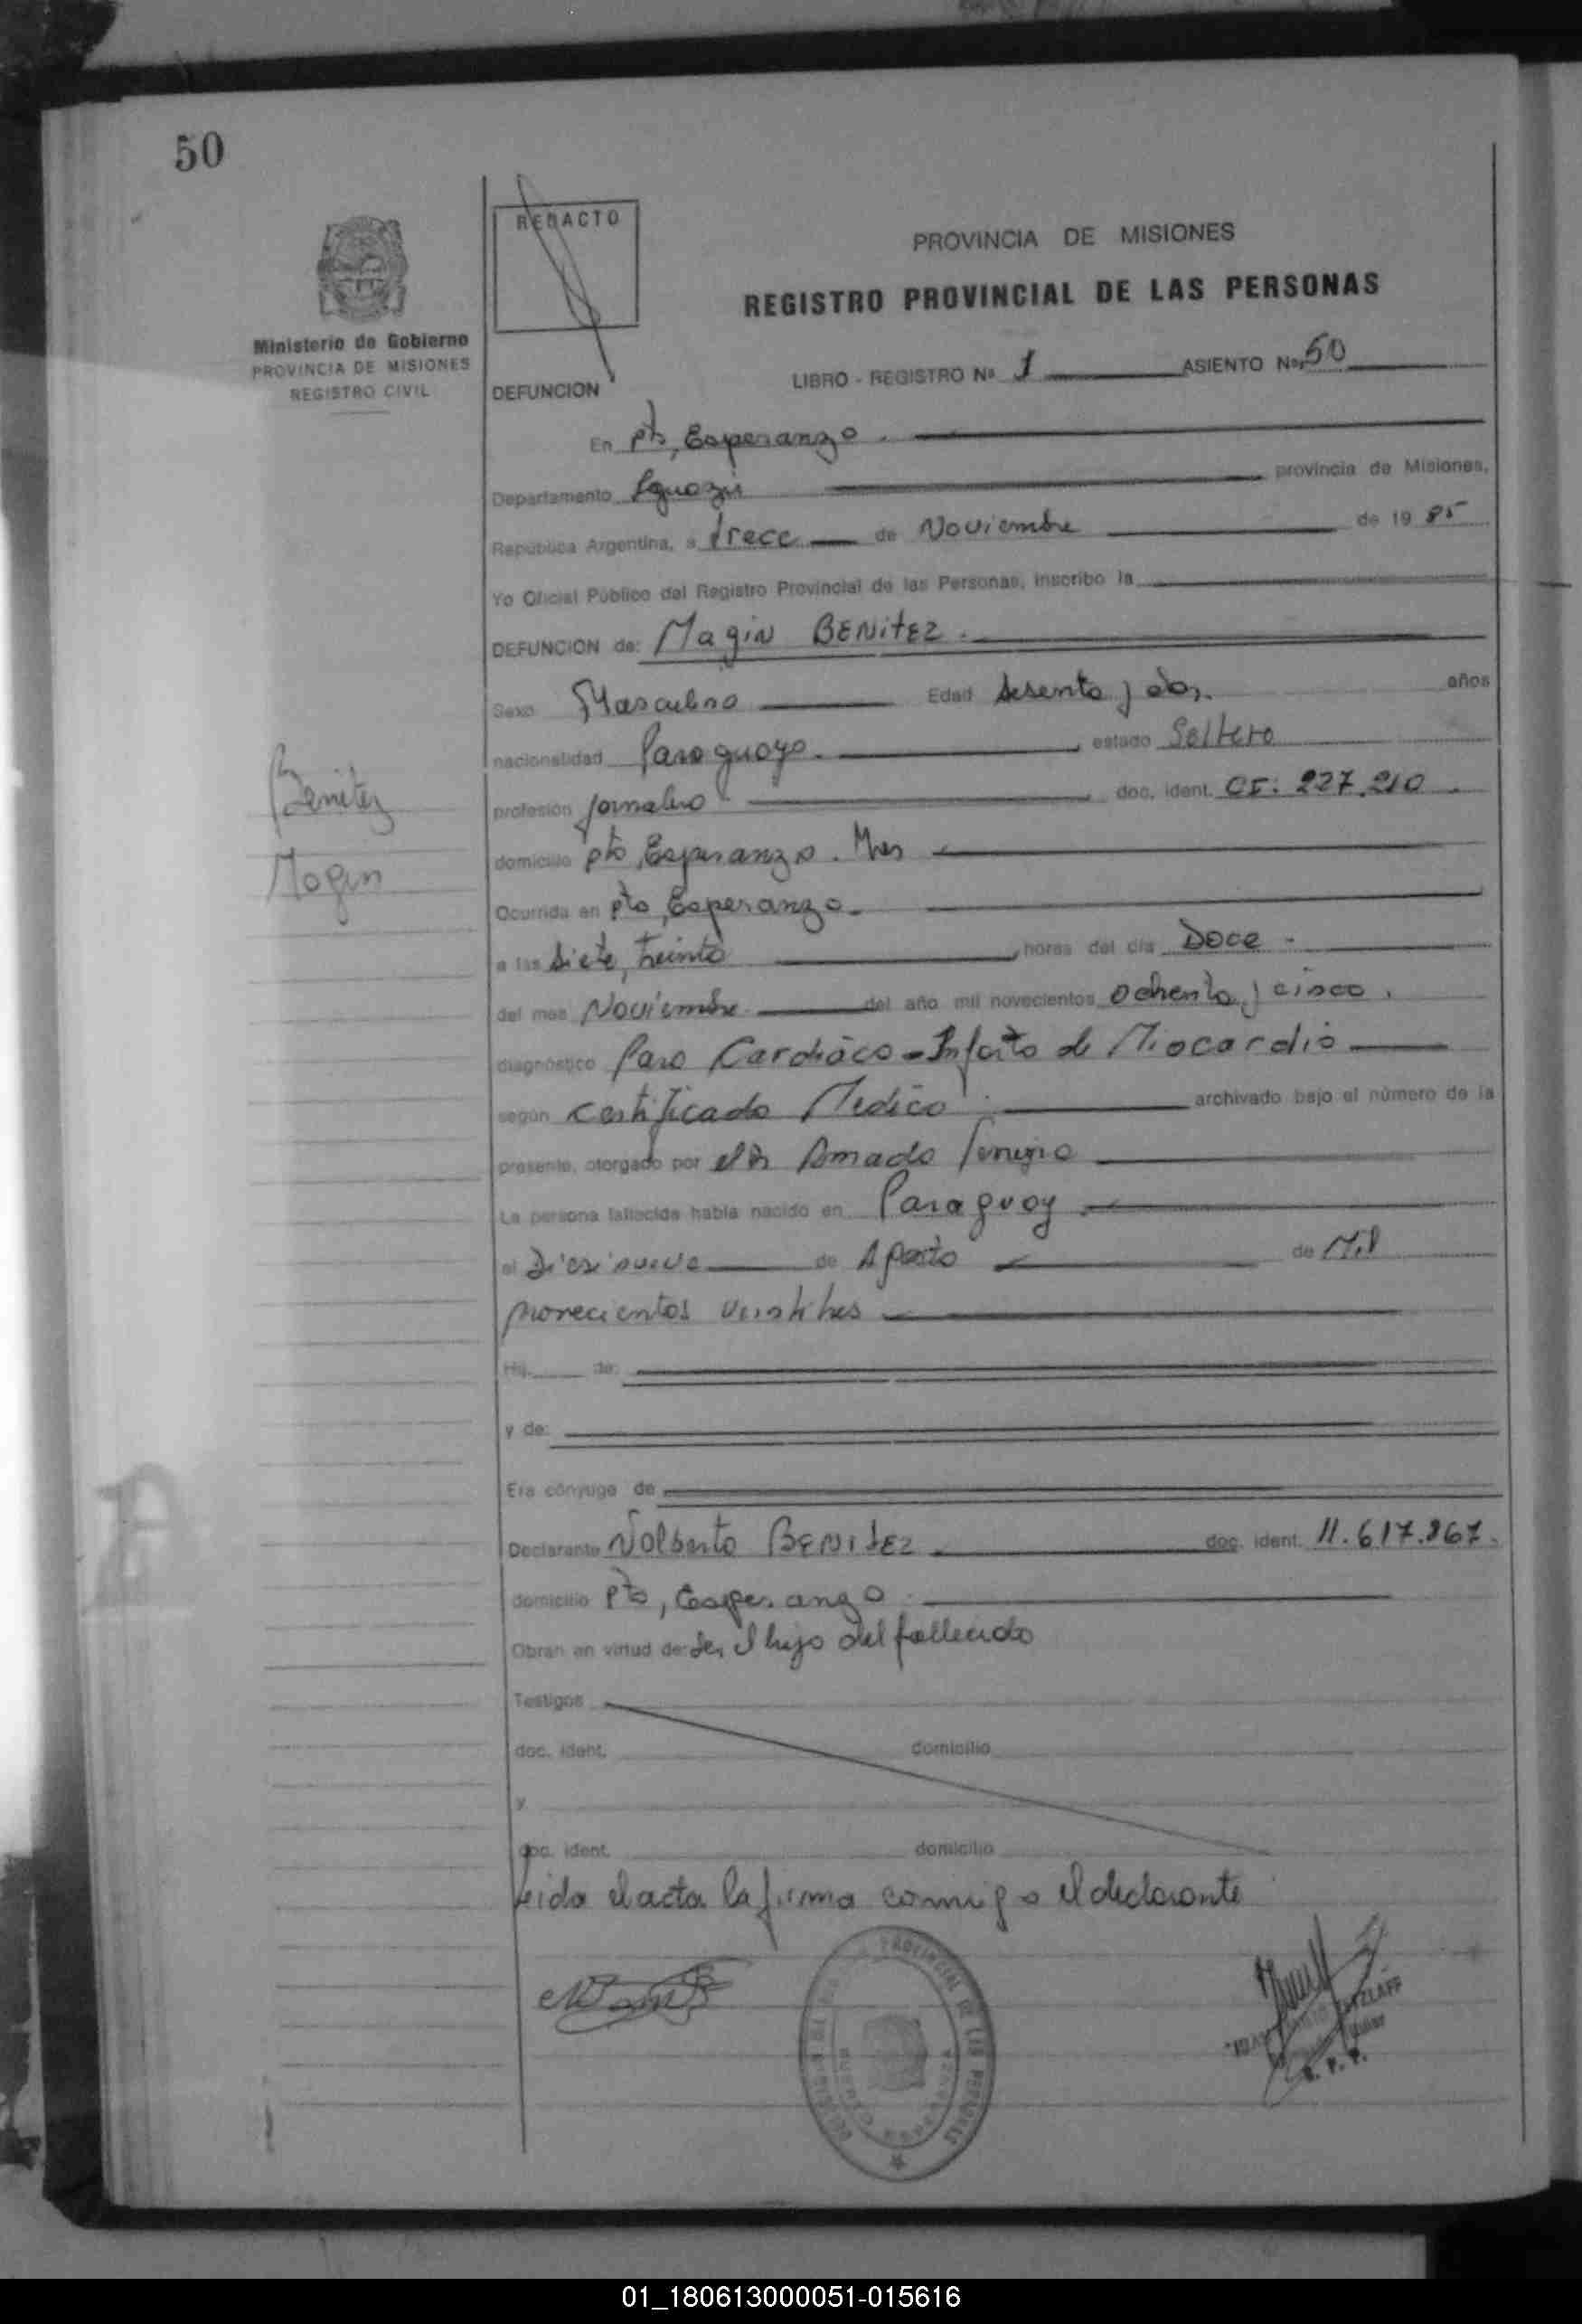 50
REDACTO
PROVINCIA DE MISIONES
REGISTRO PROVINCIAL DE LAS PERSONAS
Ministerio de Gobierno
PROVINCIA DE MISIONES
REGISTRO CIVIL
DEFUNCION
LIBRO - REGISTRO Nº 1 ASIENTO Nº 50
En pto, Esperanza.
Departamento Iguazú provincia de Misiones,
República Argentina, a trece de Noviembre de 19 85
Yo Oficial Público del Registro Provincial de las Personas, inscribo la
DEFUNCION de: Magin BENitEz.
Sexo Masculino Edad sesenta y dos. años
nacionalidad Paraguayo. estado Soltero
profesión Jornalero doc. ident. CI: 227.210.
domicilio pto, Esperanza. Mnes
Ocurrida en pto, Esperanza.
a las siete, treinta horas del día Doce.
del mes Noviembre del año mil novecientos ochenta y cinco.
diagnóstico Paro Cardiáco - Infarto de Miocardio
según Certificado Medico archivado bajo el número de la
presente, otorgado por el Dr Amado
La persona fallecida había nacido en Paraguay
el Diesinueve de Agosto de Mil
novecientos veintitres
Hij de:
y de:
Era cónyuge de
Declarante Nolberto BENitEz doc. ident. 11.617.867.
domicilio Pto, Esperanza.
Obran en virtud de: ser el hijo del fallecido
Testigos
doc. ident. domicilio
y
doc. ident. domicilio
Leida el acta la firma conmigo el declarante
Benitez
Magin
PROVINCIAL DE LAS PERSONAS
R. P. P.
01_180613000051-015616